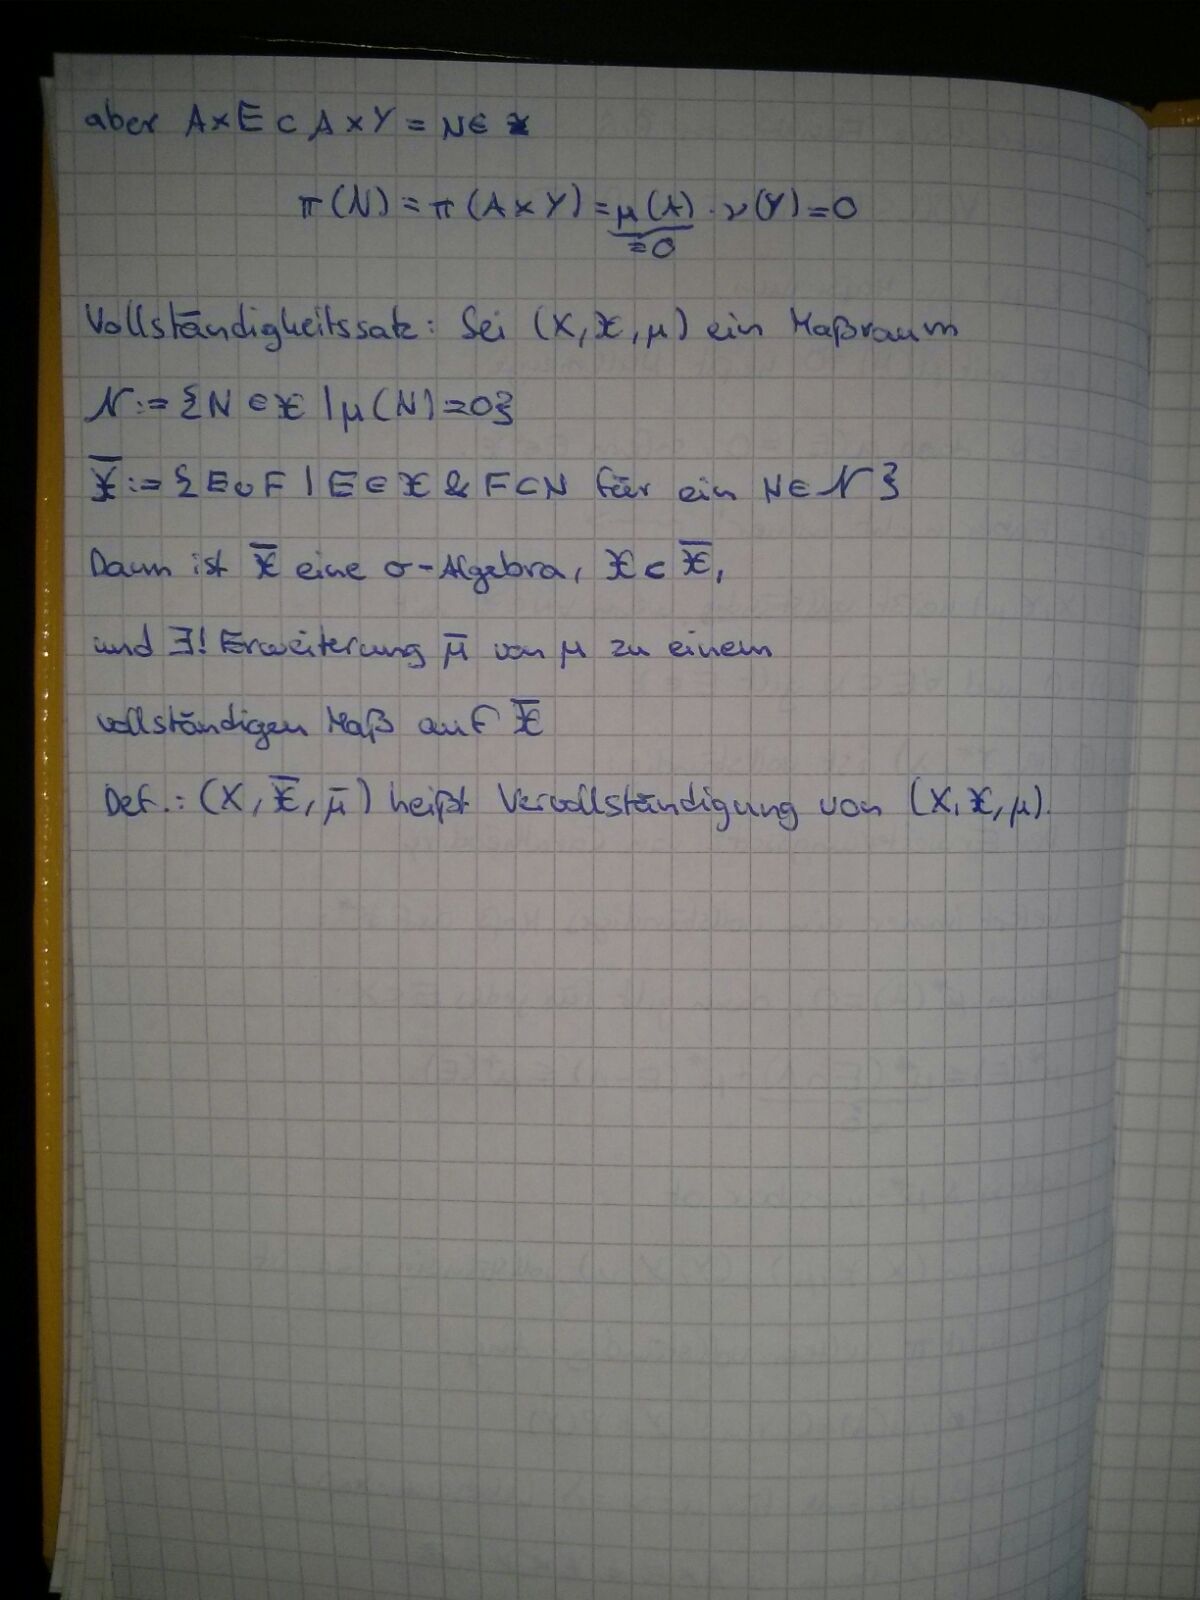 aber A×E ⊂ A×Y = N ∈ 𝔛
π(N) = π(A×Y) = μ(A) · ν(Y) = 0
=0
Vollständigkeitssatz: Sei (X, 𝔛, μ) ein Maßraum
𝒩 := {N ∈ 𝔛 | μ(N) = 0}
𝔛̅ := {E ∪ F | E ∈ 𝔛 & F ⊂ N für ein N ∈ 𝒩}
Dann ist 𝔛̅ eine σ-Algebra, 𝔛 ⊂ 𝔛̅,
und ∃! Erweiterung μ̅ von μ zu einem
vollständigen Maß auf 𝔛̅
Def.: (X, 𝔛̅, μ̅) heißt Vervollständigung von (X, 𝔛, μ).